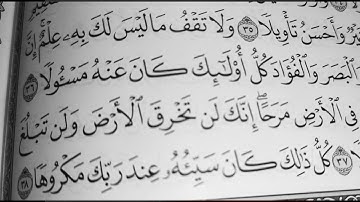 ـرٌ وَأَحْسَنُ تَأْوِيلًا ٣٥ وَلَا تَقْفُ مَا لَيْسَ لَكَ بِهِۦ عِلْمٌ ۚ إِنَّ
ٱلْبَصَرَ وَٱلْفُؤَادَ كُلُّ أُو۟لَـٰٓئِكَ كَانَ عَنْهُ مَسْـُٔولًا ٣٦
فِى ٱلْأَرْضِ مَرَحًا ۖ إِنَّكَ لَن تَخْرِقَ ٱلْأَرْضَ وَلَن تَبْلُغَ
٣٧ كُلُّ ذَٰلِكَ كَانَ سَيِّئُهُۥ عِندَ رَبِّكَ مَكْرُوهًا ٣٨